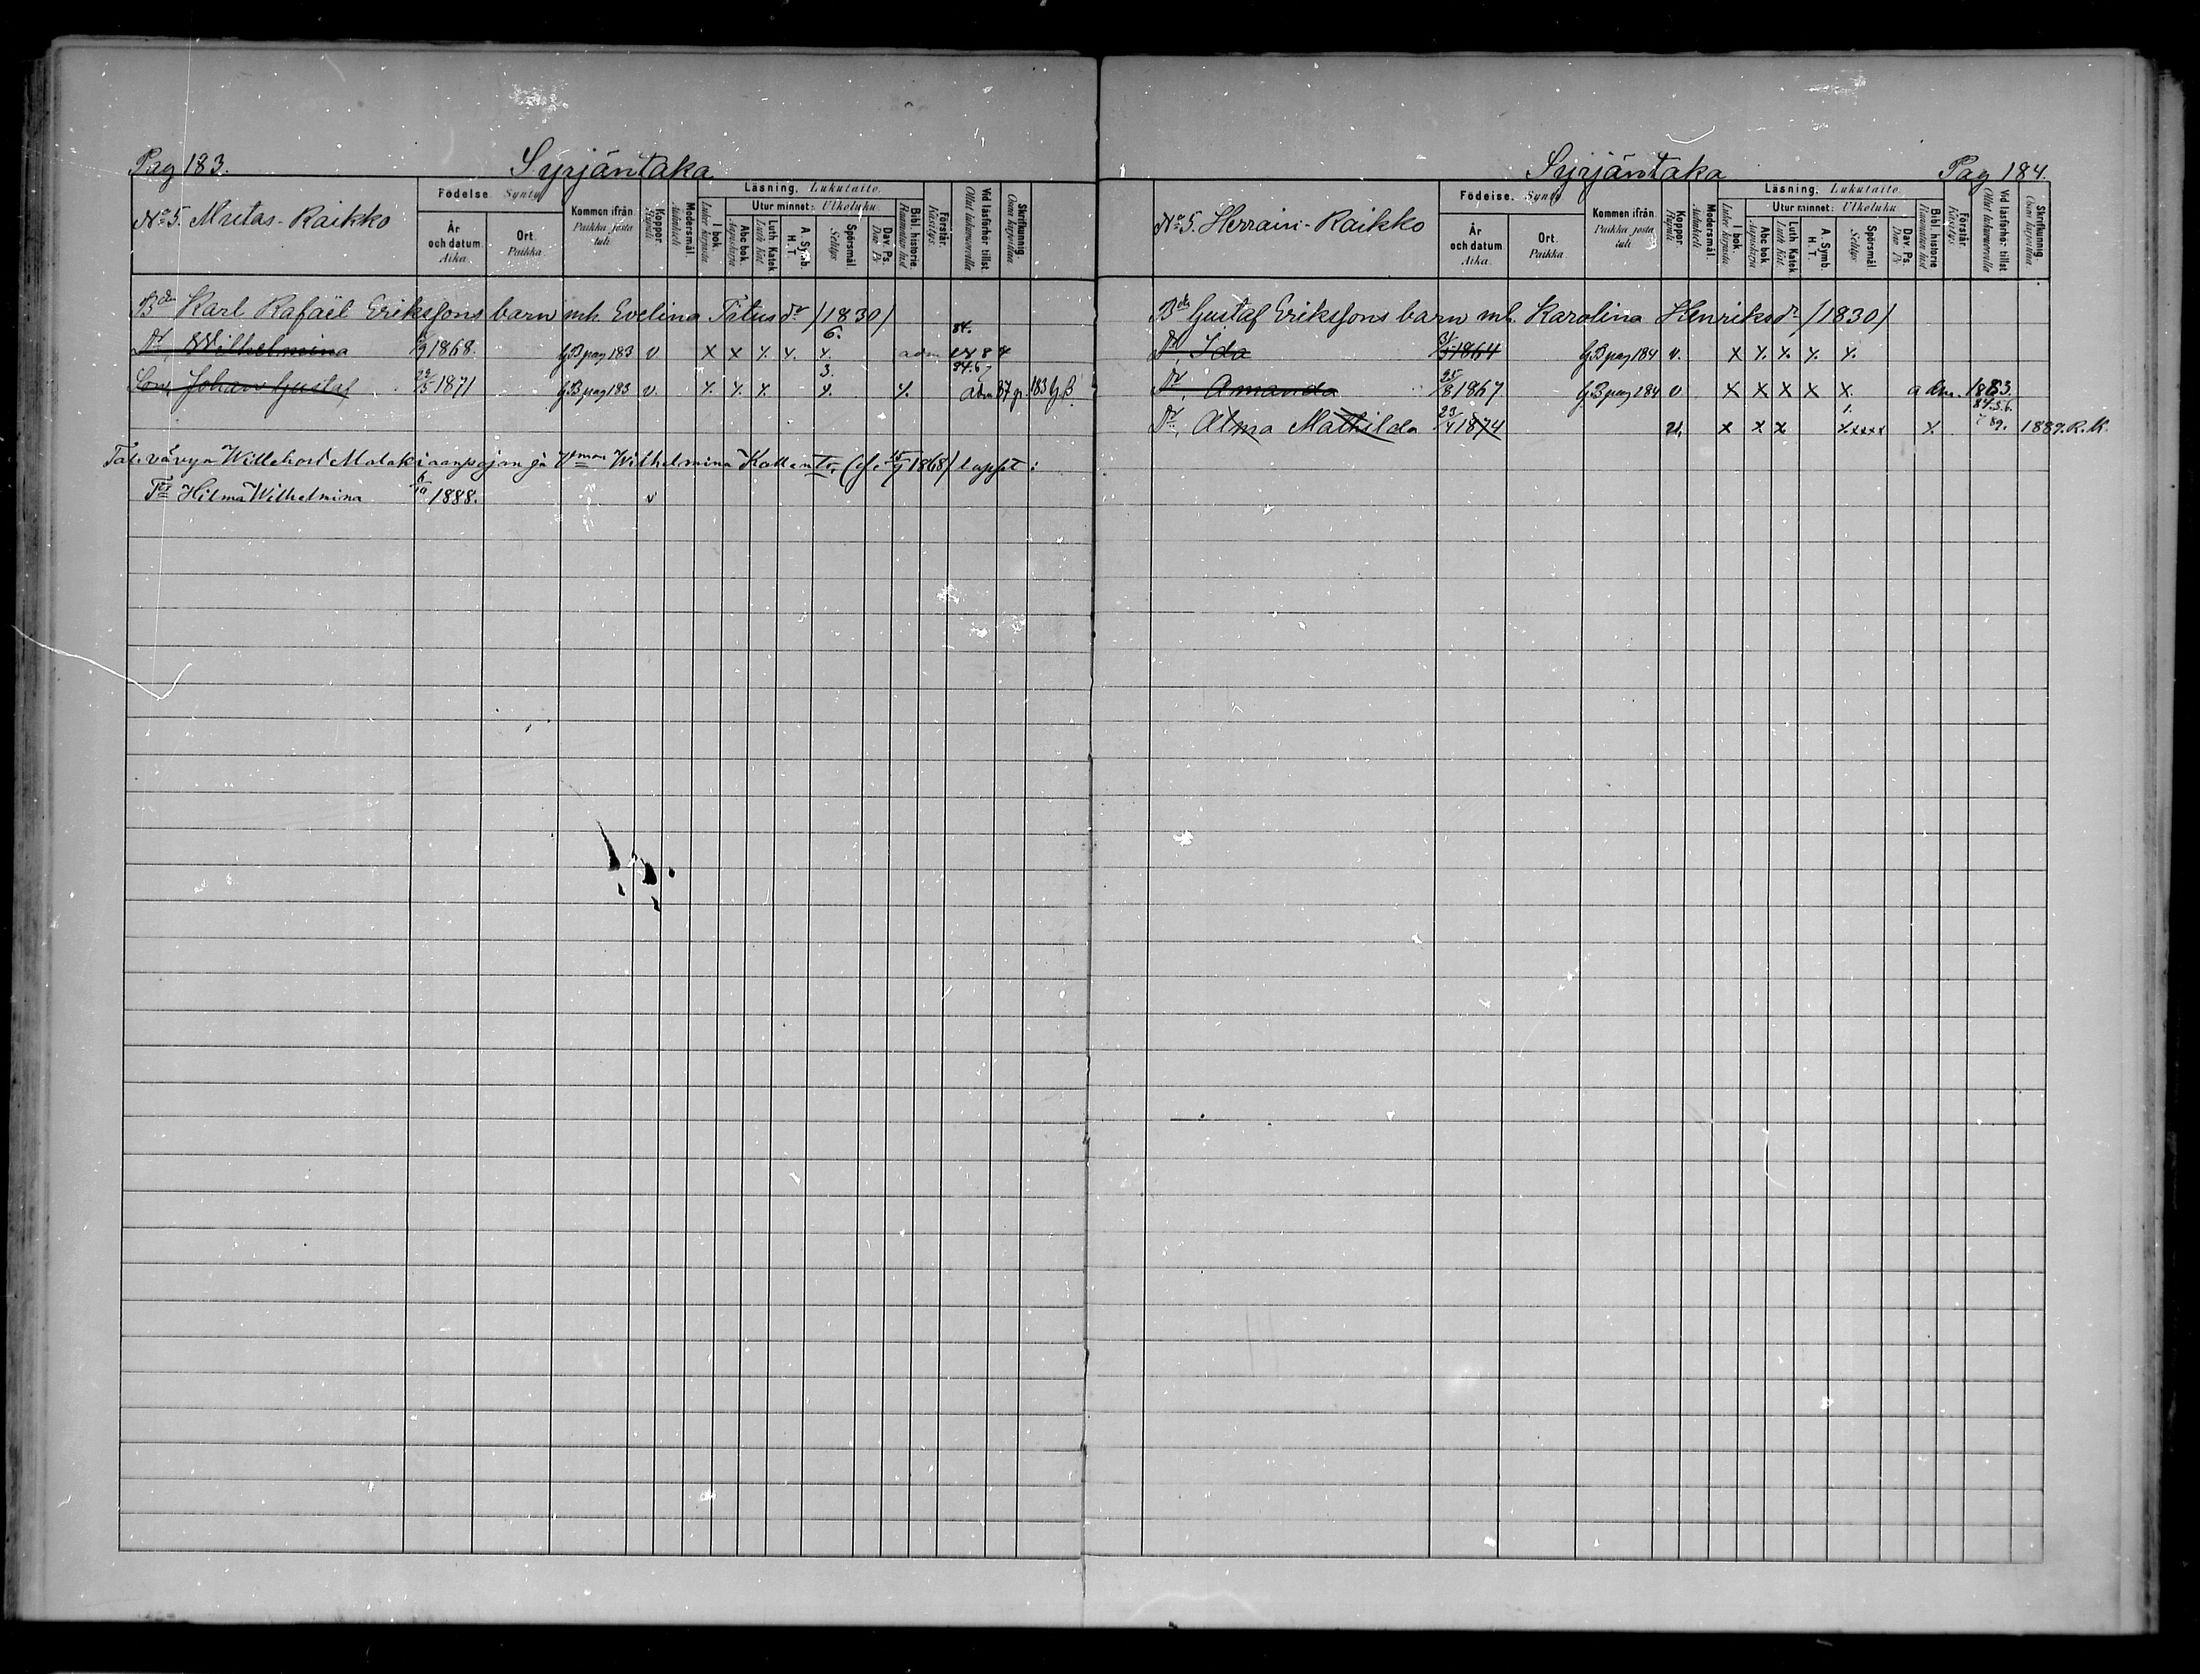 Pag 183. Syrjäntaka
No 5. Mutas-Raikko
Födelse. Synty
År och datum. Aika.
Ort. Paikka.
Kommen ifrån. Paikka josta tuli.
Koppor. Rupuli
Modersmål. Äidinkieli
Läsning. Lukutaito.
I bok. Lukee kirjasta
Utur minnet: Ulkoluku.
Abc bok. Aapiskirja
Luth. Katek. Luth. Kat.
A. Symb. H. T.
Spörsmål. Selitys
Dav. Ps. Dav. Ps.
Bibl. historie. Raamatun hist
Förstår. Käsitys.
Vid läsförhör tillst. Ollut lukukunnilla
Skrifkunnig. Osaa kirjoittaa
Bden Karl Rafaël Erikssons barn mh. Evelina Titus dr /1830/
Dr, Wilhelmina 1868. G.B pag 183 v. x x x. x. 6. x. adm 84.
Son, Johan Gustaf 22/5 1871 G.B pag 183 v. x. x. x. 3. x. x. 84.6 adm 87 183 G.B
Tal. vävyn Willehard Malakiaanpojan ja Wilhelmina Kallentr. 1868) lapset:
Tr Hilma Wilhelmina 8/10 1888. v
Syrjäntaka Pag 184.
No 5. Herrain-Raikko
Födelse. Synty
År och datum Aika.
Ort. Paikka.
Kommen ifrån. Paikka josta tuli.
Koppor. Rupuli
Modersmål. Äidinkieli
Läsning. Lukutaito.
I bok. Lukee kirjasta
Utur minnet: Ulkoluku.
Abc bok Aapiskirja
Luth. Katek Luth. Kat.
A. Symb. H. T.
Spörsmål Selitys
Dav. Ps. Dav. Ps
Bibl. historie Raamatun hist
Förstår. Käsitys.
Vid läsförhör tillst
Skrifkunnig. Osaa kirjoittaa
Bden Gustaf Erikssons barn mh. Karolina Henriksdr /1830/
Dr, Ida 1864 G.B pag 184 v. x x. x. x. x.
Dr, Amanda 25/8 1867 G.B pag 184 v x x x x x. adm. 1883.
Dr, Alma Mathilda 23/4 1874 v, x x x 1. x x x x x x. 84.5.6. 7 89. 1889. R.K.